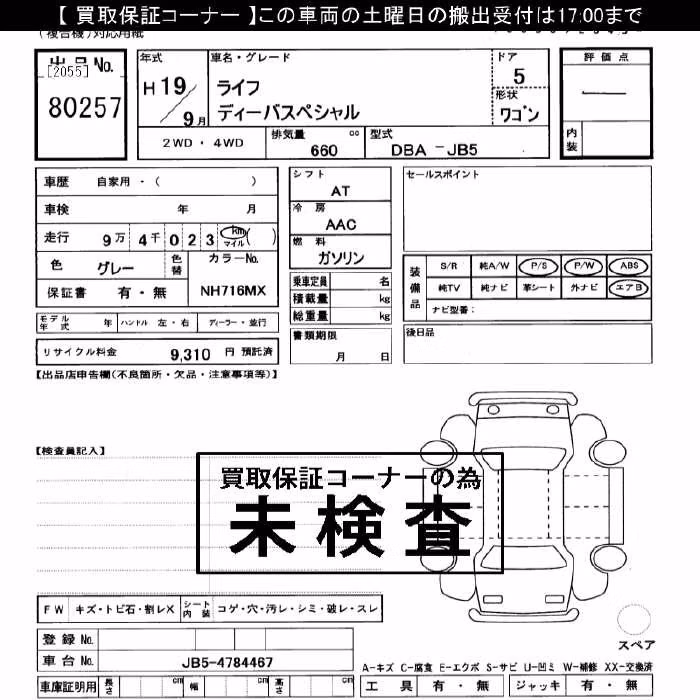 【 買取保証コーナー 】この車両の土曜日の搬出受付は17:00まで
(複合機)対応用紙
出品No.
[2055]
80257
年式
H 19
9月
車名・グレード
ライフ
ディーバスペシャル
ドア
5
形状
ワゴン
評価点
内装
2WD ・ 4WD
排気量 cc
660
型式
DBA -JB5
車歴 自家用 ・ ( )
車検 年 月
走行 9万 4千 0 2 3 km マイル ( )
色 グレー
色替
カラーNo.
NH716MX
保証書 有 ・ 無
モデル年式 年 ハンドル 左 ・ 右 ディーラー ・ 並行
リサイクル料金 9,310 円 預託済
シフト
AT
冷房
AAC
燃料
ガソリン
乗車定員 名
積載量 kg
総重量 kg
書類期限
月 日
セールスポイント
装備品
S/R 純A/W P/S P/W ABS
純TV 純ナビ 革シート 外ナビ エアB
ナビ型番：
後日品
【出品店申告欄(不良箇所・欠品・注意事項等)】
【検査員記入】
買取保証コーナーの為
未検査
FW キズ・トビ石・割レX シート内装 コゲ・穴・汚レ・シミ・破レ・スレ
登録 No.
車台 No. JB5-4784467
車庫証明用 長さ cm 幅 cm 高さ cm
スペア
A-キズ C-腐食 E-エクボ S-サビ U-凹ミ W-補修 XX-交換済
工具 有 ・ 無 ジャッキ 有 ・ 無